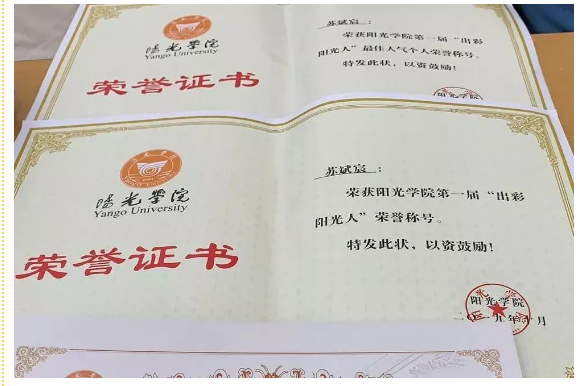 陽光學院
Yango University
荣誉证书
苏斌宸：
荣获阳光学院第一届“出彩
阳光人”最佳人气个人荣誉称号。
特发此状，以资鼓励！
阳光学院
陽光學院
Yango University
荣誉证书
苏斌宸：
荣获阳光学院第一届“出彩
阳光人”荣誉称号。
特发此状，以资鼓励！
阳光学院
二〇一九年十月